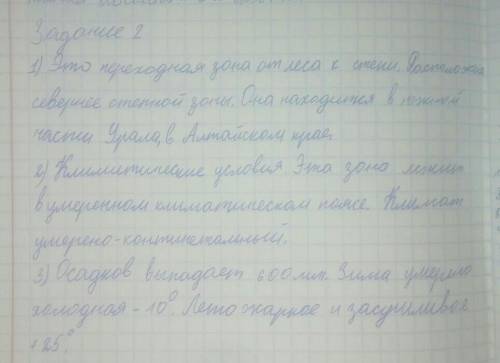 Задание 2
1) Это переходная зона от леса к степи. Расположена
севернее степной зоны. Она находится в южной
части Урала, в Алтайском крае.
2) Климатические условия. Эта зона лежит
в умеренном климатическом поясе. Климат
умерено-континетальный.
3) Осадков выпадает 600мм. Зима умерено
холодная -10°. Лето жаркое и засушливое
+25°